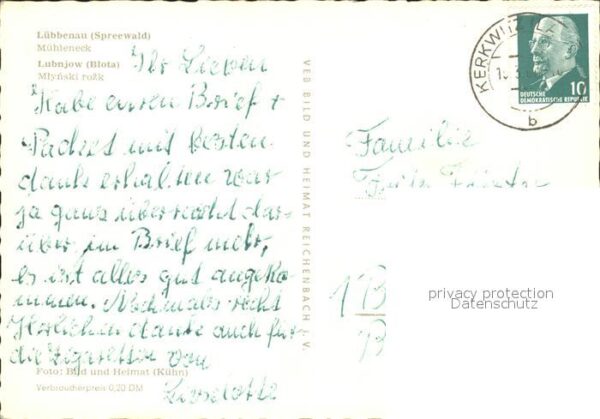 Lübbenau (Spreewald)
Mühleneck
Lubnjow (Blota)
Młyński rožk
Ihr Lieben
Habe euren Brief +
mit besten
dank erhalten war
ja ganz überrascht dar-
über, im Brief mehr,
es ist alles gut angeko
mmen. Nochmals recht
Herzlichen danke auch für
die Zigaretten von
Liselotte
Foto: Bild und Heimat (Kühn)
Verbraucherpreis 0,20 DM
VEB BILD UND HEIMAT REICHENBACH I. V.
KERKWITZ
b
DEUTSCHE
DEMOKRATISCHE REPUBLIK
10
Familie
Fritz
1 B
privacy protection
Datenschutz